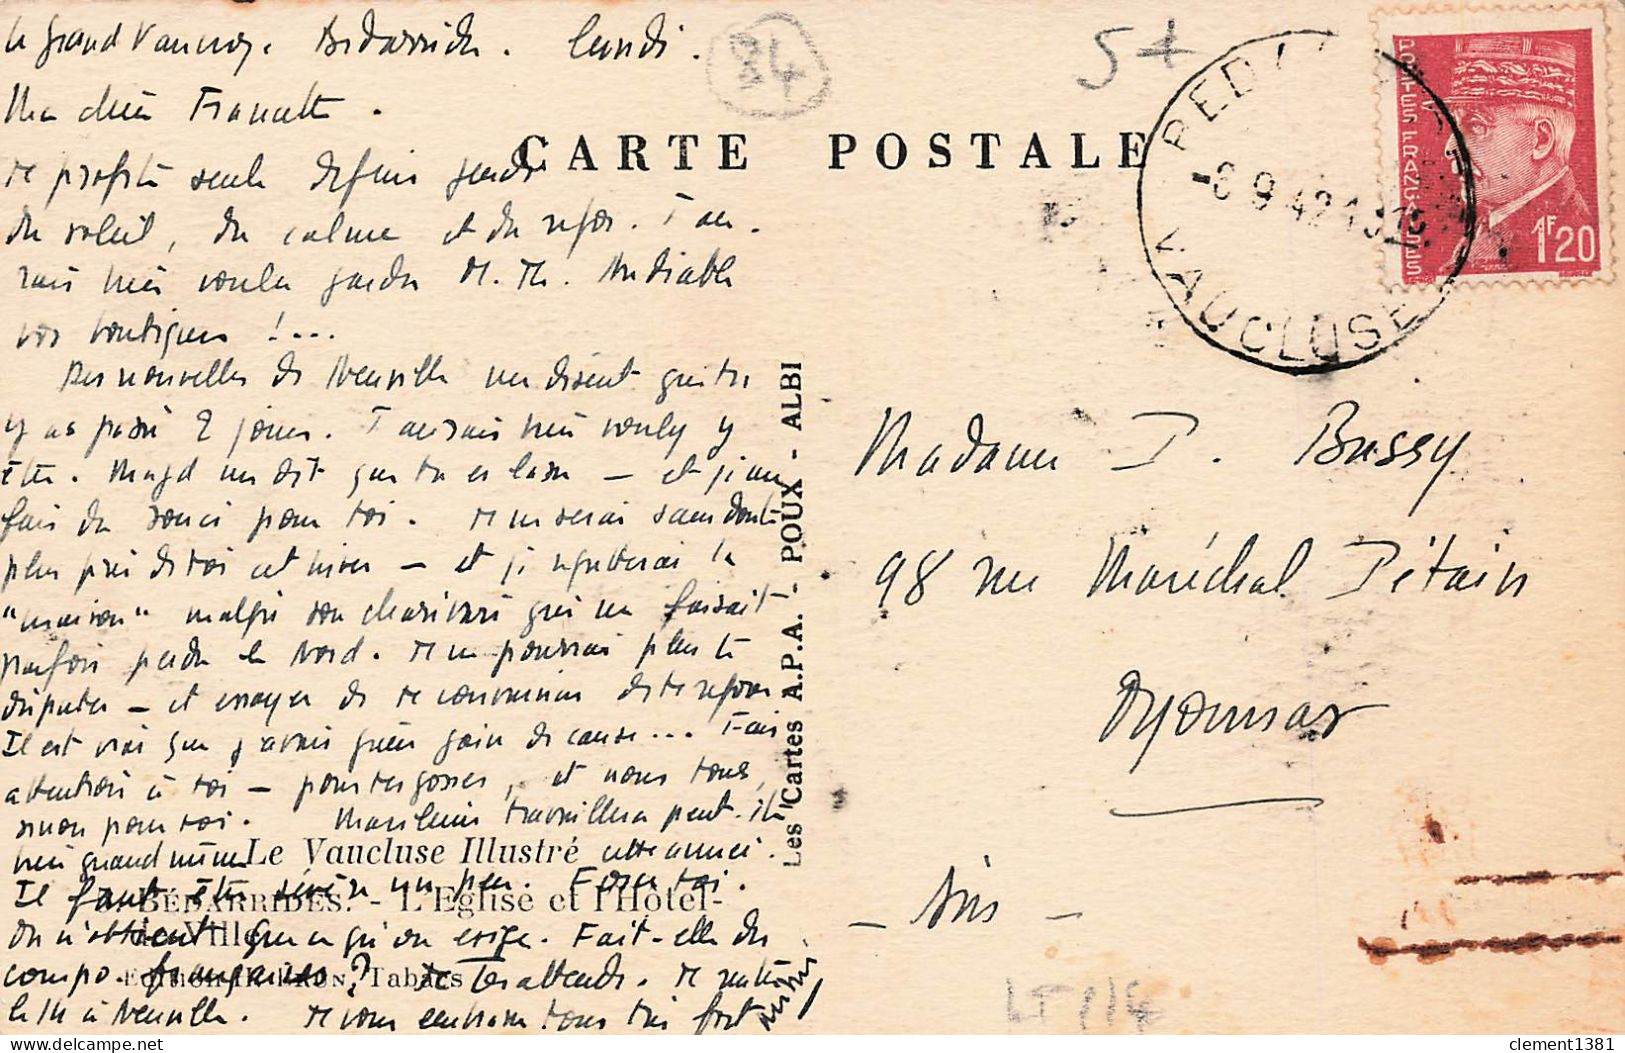 le Grand Vaucroze. Bédarrides. Lundi.
84
5+
Ma chère Francette.
CARTE POSTALE
BEDA
VAUCLUSE
-8 9 42
POSTES FRANÇAISES
1F20
Je profite seule depuis jeudi
du soleil, du calme et du repos. J'au-
rais bien voulu garder M. Th. Au diable
vos boutiques !...
Des nouvelles de Neuville me disent que tu
y as passé 2 jours. J'aurais bien voulu y
être. Magd me dit que tu es lasse — et j'ai
fais du souci pour toi. Je me serai sans doute
plus près de toi cet hiver — et je regretterai la
"maison" malgré son charivari qui me faisait
parfois perdre le Nord. Je ne pourrai plus te
disputer — et essayer de te convaincre de te reposer
Il est vrai que j'avais guère gain de cause... Fais
attention à toi — pour tes gosses, et nous tous,
sinon pour toi. travaillera peut-être
bien quand même cette année.
Il faut être sévère un peu. Force toi.
On n'obtient que ce qu'on exige. Fait-elle des
compo. françaises ? Je les attends. Je rentre
le 14 à Neuville. Je vous embrasse tous très fort
Le Vaucluse Illustré
BÉDARRIDES. - L'Eglise et l'Hôtel-
de-Ville
Tabacs
Les Cartes A.P.A. - POUX - ALBI
Madame P. Bussy
98 rue Maréchal Pétain
Oyonnax
— Ain —
clement1381